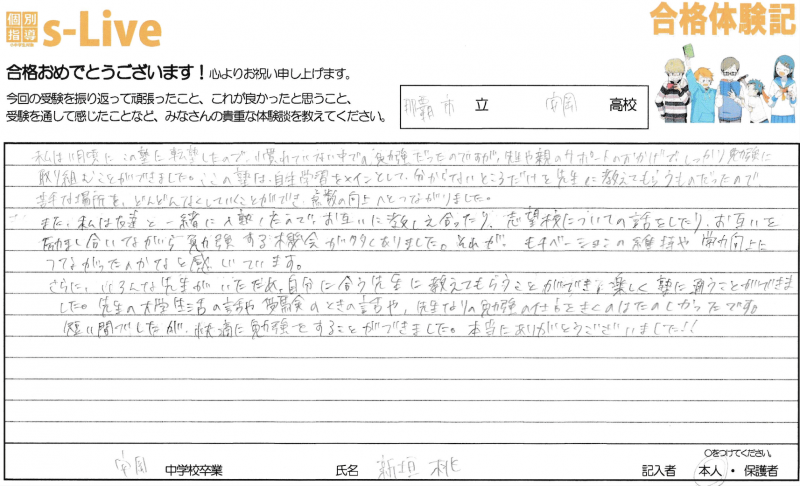 個別指導
s-Live
合格体験記
合格おめでとうございます！心よりお祝い申し上げます。
今回の受験を振り返って頑張ったこと、これが良かったと思うこと、
受験を通して感じたことなど、みなさんの貴重な体験談を教えてください。
那覇市 立 高校
私は 月頃にこの塾に転塾したので、慣れていない中での勉強だったのですが、先生や親のサポートのおかげでしっかり勉強に
取り組むことができました。この塾は、自主学習をメインとして、分からないところだけを先生に教えてもらうものだったので
苦手な場所を、どんどんなくしていくことができ、点数の向上へとつながりました。
また、私は友達と一緒に入塾したので、お互いに教え合ったり、志望校についての話をしたり、お互いを
励まし合いながら勉強する機会が多くありました。それが、モチベーションの維持や学力向上に
つながったのかなと感じています。
さらに、いろんな先生がいたため、自分に合う先生に教えてもらうことができ、楽しく塾に通うことができま
した。先生の大学生活の話や受験のときの話や、先生なりの勉強の仕方をきくのはたのしかったです。
短い間でしたが、快適に勉強をすることができました。本当にありがとうございました!!
〇をつけてください。
中学校卒業 氏名 新垣 桃 記入者 本人・保護者